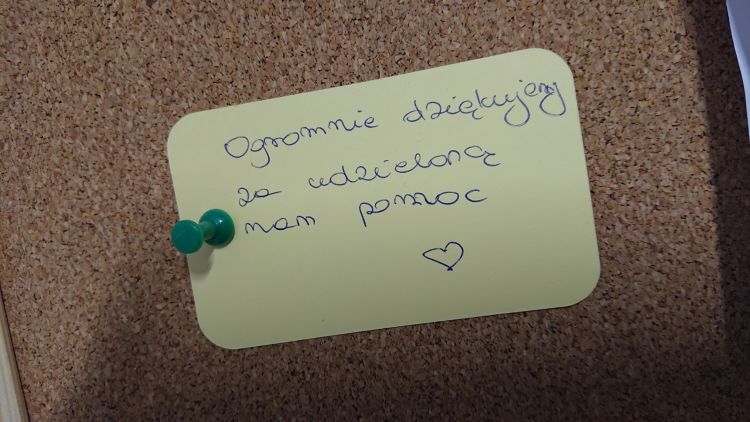 Ogromnie dziękujemy
za udzieloną
nam pomoc